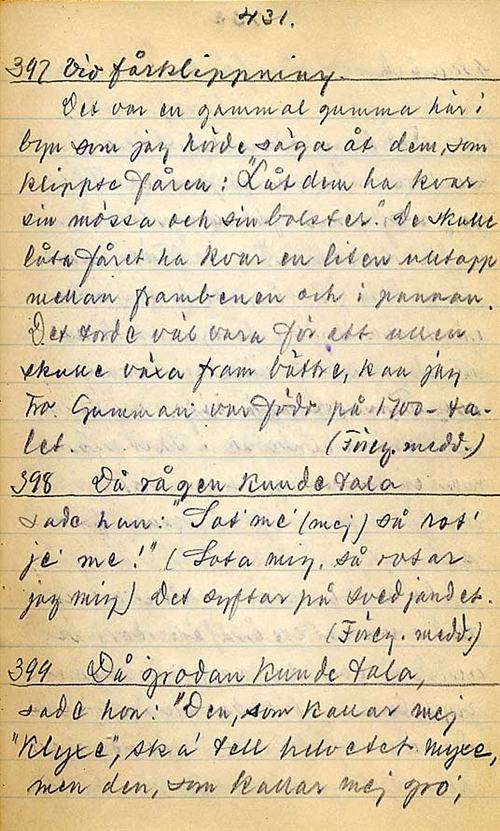 431.
397 Vid fårklippning.
Det var en gammal gumma här i
byn som jag hörde säga åt dem, som
klippte fåren: "Låt dem ha kvar
sin mössa och sin bolster." De skulle
låta fåret ha kvar en liten ulltapp
mellan frambenen och i pannan.
Det torde väl vara för att ullen
skulle växa fram bättre, kan jag
tro. Gumman var född på 1700-ta-
let. (Föreg. medd.)
398 Då rågen kunde tala
sade han: "Sot' me' (mej) så rot'
je' me'!" (Sota mig, så rotar
jag mig) Det syftar på svedjandet.
(Föreg. medd.)
399 Då grodan kunde tala,
sade hon: "Den, som kallar mej
"Klyxe", ska' tell helvetet myxe,
men den, som kallar mej gro',